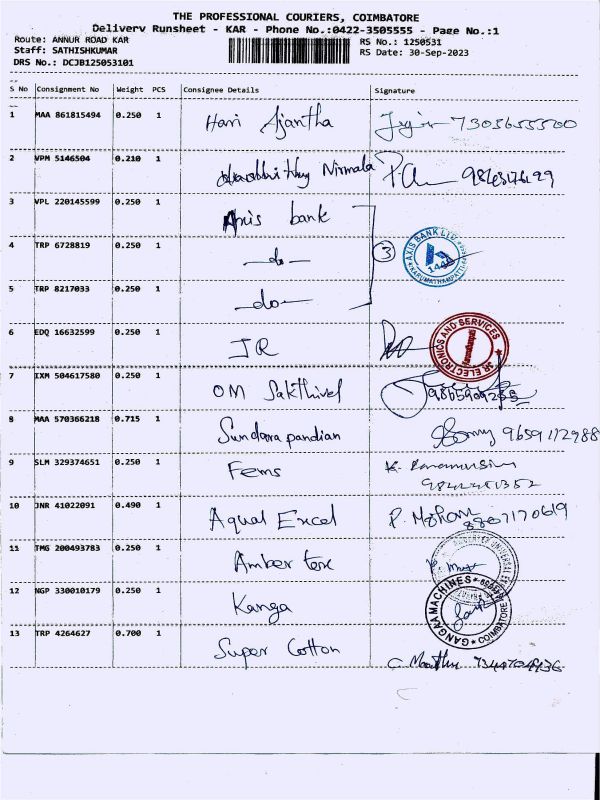 THE PROFESSIONAL COURIERS, COIMBATORE
Delivery Runsheet - KAR - Phone No.:0422-3505555 - Page No.:1
Route: ANNUR ROAD KAR
RS No.: 1250531
Staff: SATHISHKUMAR
RS Date: 30-Sep-2023
DRS No.: DCJB125053101
S No Consignment No Weight PCS Consignee Details Signature
1 MAA 861815494 0.250 1 Hari Ajantha 7305655500
2 VPM 5146504 0.210 1 Nirmala
3 VPL 220145599 0.250 1 Axis bank
4 TRP 6728819 0.250 1 -do- 3 AXIS BANK LTD KARUMATHAMPATTI
5 TRP 8217033 0.250 1 -do-
6 EDQ 16632599 0.250 1 JR JR ELECTRONICS AND SERVICES
7 IXM 504617580 0.250 1 OM Sakthivel
8 MAA 570366218 0.715 1 Sundara pandian 9659112988
9 SLM 329374651 0.250 1 Fems
10 JNR 41022091 0.490 1 Aqual Excel P. Mohan 8807170619
11 TMG 200493783 0.250 1 Amber tex
12 NGP 330010179 0.250 1 Kanga GANGAA MACHINES COIMBATORE
13 TRP 4264627 0.700 1 Super Cotton